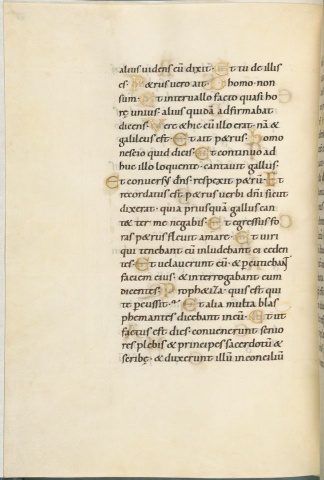 alius uidens eū dixit · Et tu de illis
es · Petrus uero ait · O homo · non
sum · Et interuallo facto quasi ho
rę unius · alius quidā adfirmabat
dicens · Vere & hic cū illo erat · nā &
galileus est · Et ait petrus · Homo
nescio quid dicis · Et continuo ad
huc illo loquente · cantauit gallus ·
Et conuersus dn̄s respexit petrū · Et
recordatus est petrus uerbi dn̄i sicut
dixerat · quia priusquā gallus can
t& ter me negabis · Et egressus fo
ras petrus fleuit amare · Et uiri
qui tenebant eū inludebant ei ceden
tes · Et uelauerunt eū · & percutiebant
faciem eius · & interrogabant eum
dicentes · Proph&iza · quis est qui
te percussit · Et alia multa blas
phemantes dicebant in eū · Et ut
factus est dies · conuenerunt senio
res plebis & principes sacerdotū &
scribę · & duxerunt illū in conciliū